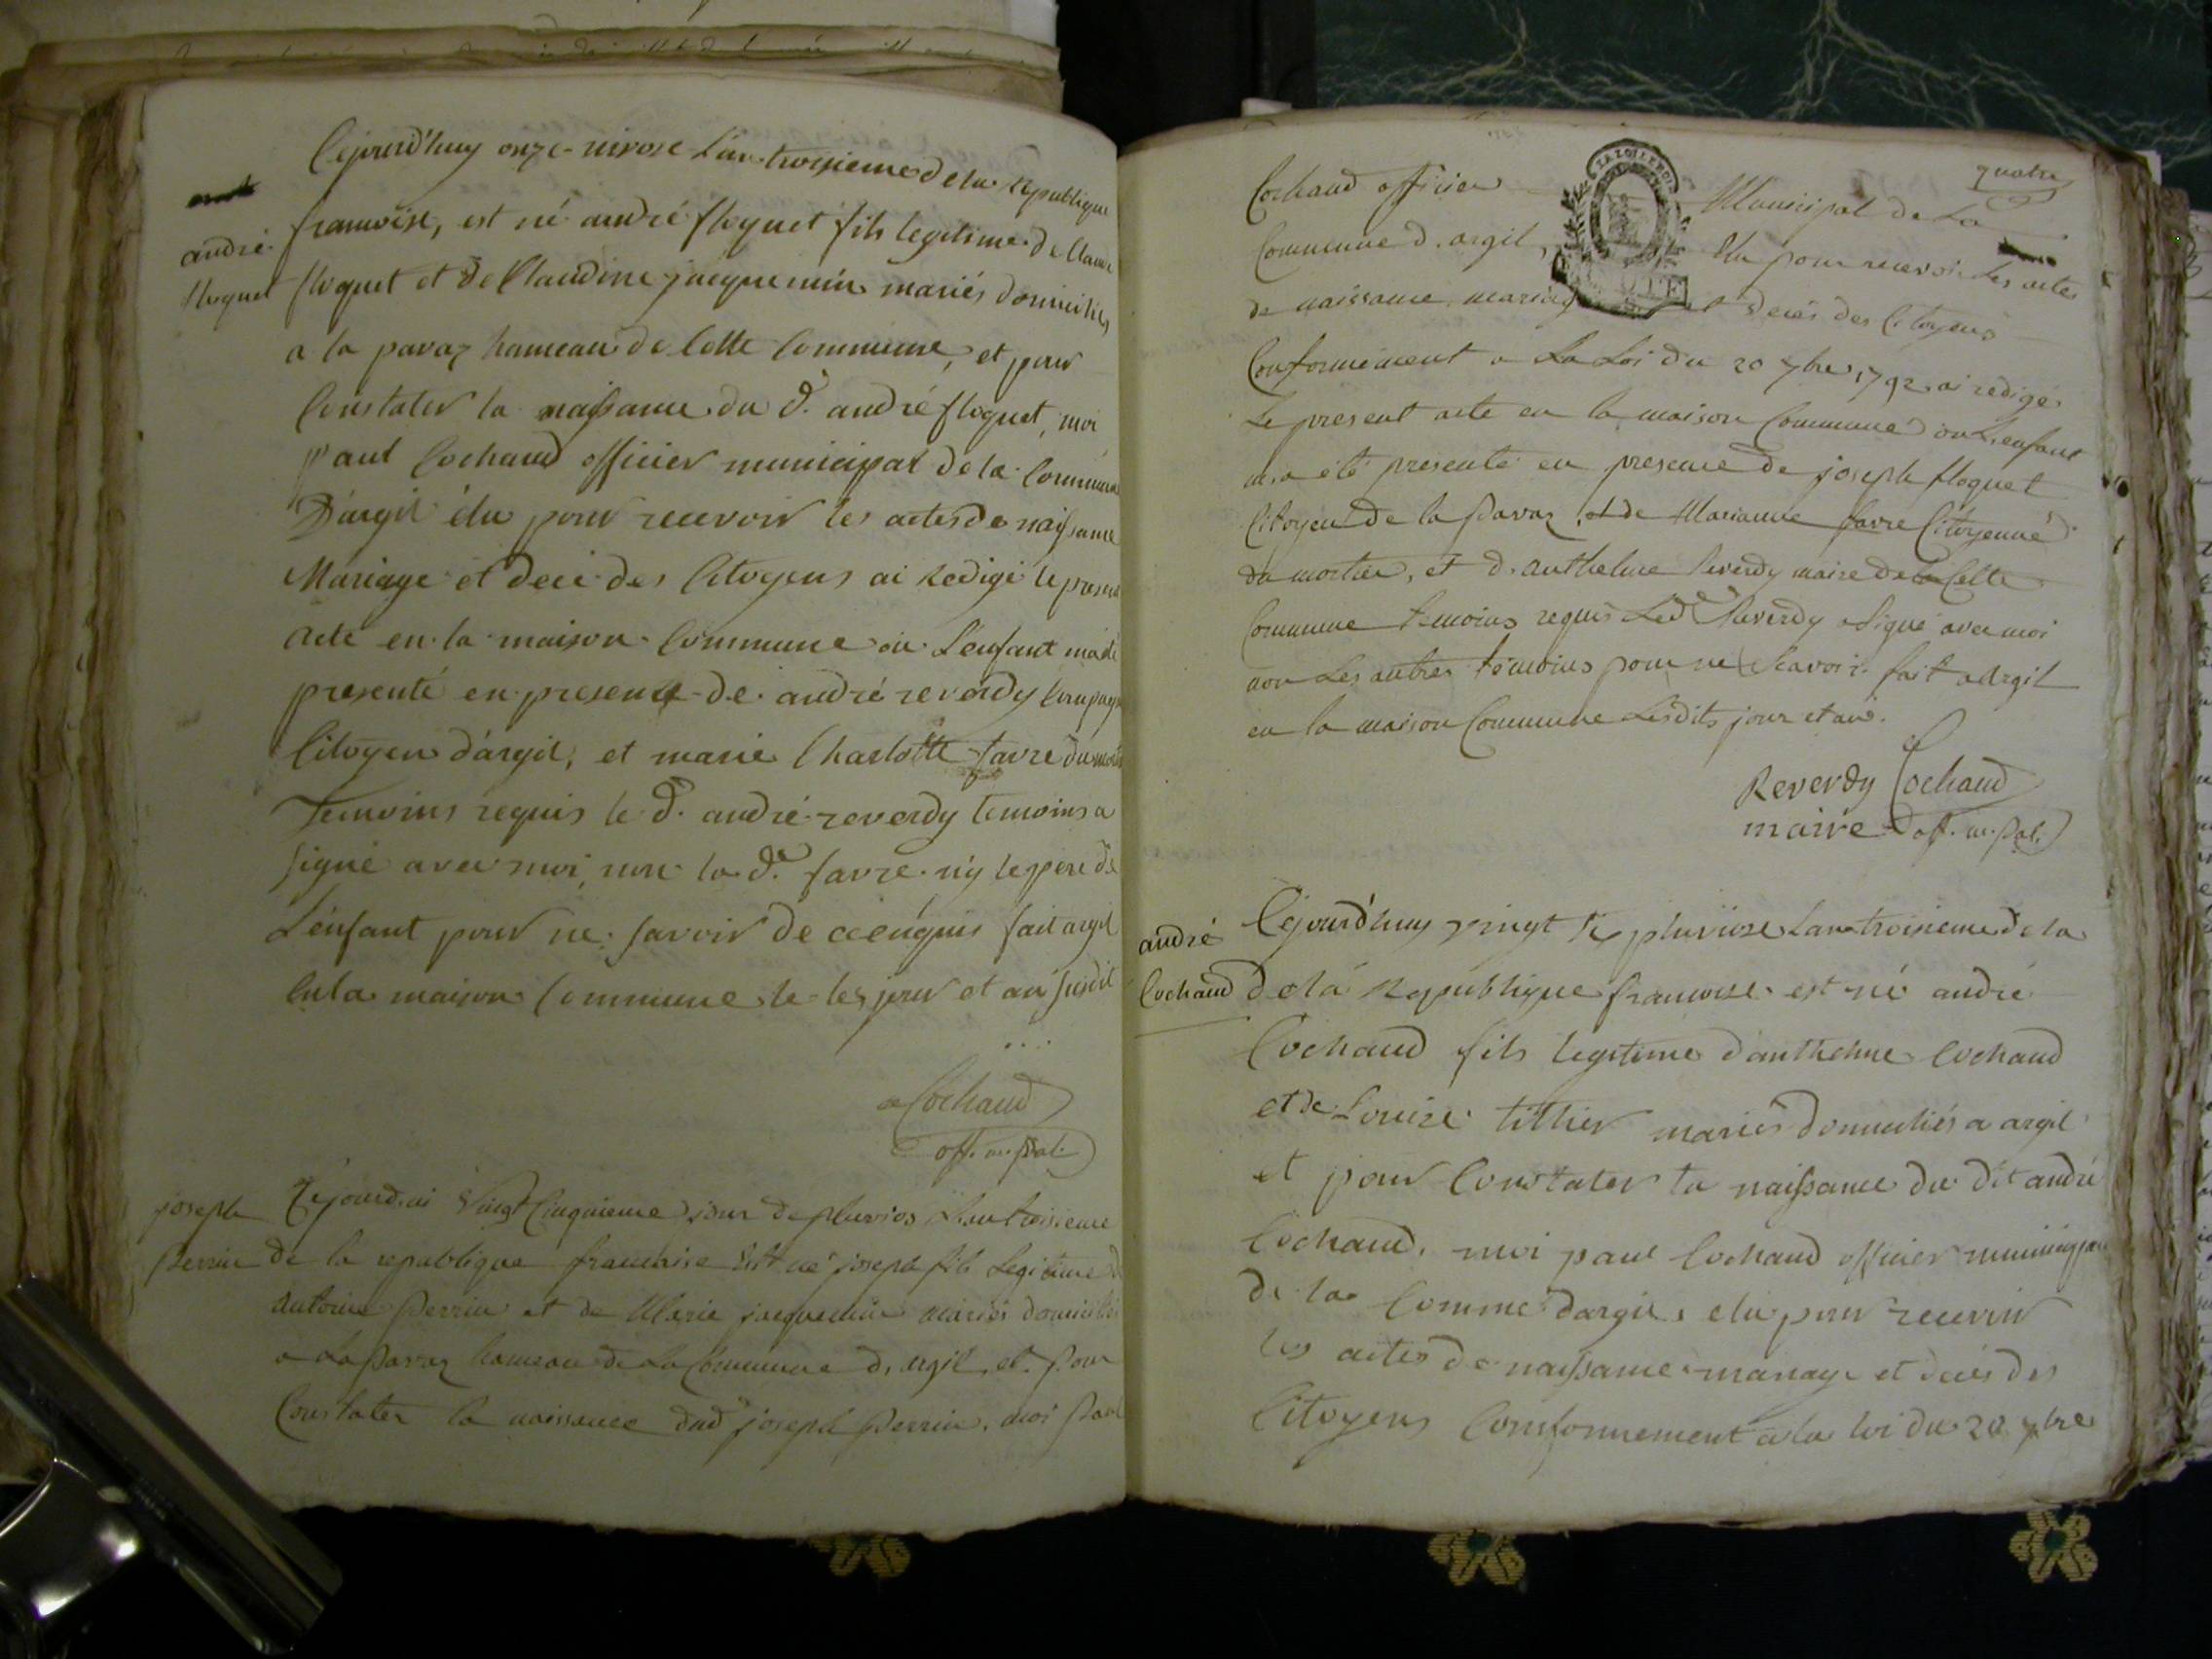 Cejourd'huy onze nivose L'an troisieme de la Republique
andré
floquet
francoise, est né andré floquet fils legitime de Claude
floquet et de Claudine jacquemin mariés domiciliés
a la pavaz hameau de Cette Commune, et pour
Constater la naissance du d. andré floquet, moi
paul Cochaud officier municipal de la Commune
D'argil élu pour recevoir les actes de naissance
Mariage et decé des Citoyens ai Redigé le present
acte en la maison Commune ou L'enfant m'a été
presenté en presence de andré reverdy
Citoyen d'argil, et marie Charlotte favre du
Temoins requis le d. andré reverdy temoins a
signé avec moi, non la de. favre ny le pere de
L'enfant pour ne savoir de ce enquis fait argil
en la maison Commune le les jour et an susdit
Cochaud
off. m.pal.
joseph
Perrin
Cejourd'ui Vingt Cinquieme jour de pluvios L'an troisieme
de la republique francaise Est né joseph fils Legitime d
Antoine Perrin et de Marie jacquemin mariés domiciliés
a La Pavaz hameau de La Commune d'argil, et pour
Constater la naissance dud joseph Perrin, moi Paul
quatre
LA LOI LE ROI
Cochaud officier Municipal de La
Commune d'argil, Elu pour recevoir Les actes
de naissance mariage et deces des Citoyens
Conformement a La Loi du 20 7bre 1792 ai redigé
Le present acte en la maison Commune ou L'enfant
m'a été presenté en presence de joseph floquet
Citoyen de la Pavaz, et de Marianne favre Citoyenne
du mortier, et d'anthelme Reverdy maire de la Cette
Commune temoins requis Led Reverdy a Signé avec moi
non Les autres temoins pour ne Scavoir. fait a Argil
en la maison Commune Lesdits jour et an.
Reverdy Cochaud
maire off. m.pal.
andré
Cochaud
Cejourd'huy vingt pluviose L'an troisieme de la
de la Republique francoise est né andré
Cochaud fils legitime d'anthelme Cochaud
et de Louise tillier mariés domiciliés a argil
et pour Constater la naissance du dit andré
Cochaud, moi paul Cochaud officier municipal
de la Comme d'argil, elu pour recevoir
les actes de naissance mariage et decés des
Citoyens Conformement a la loi du 20 7bre